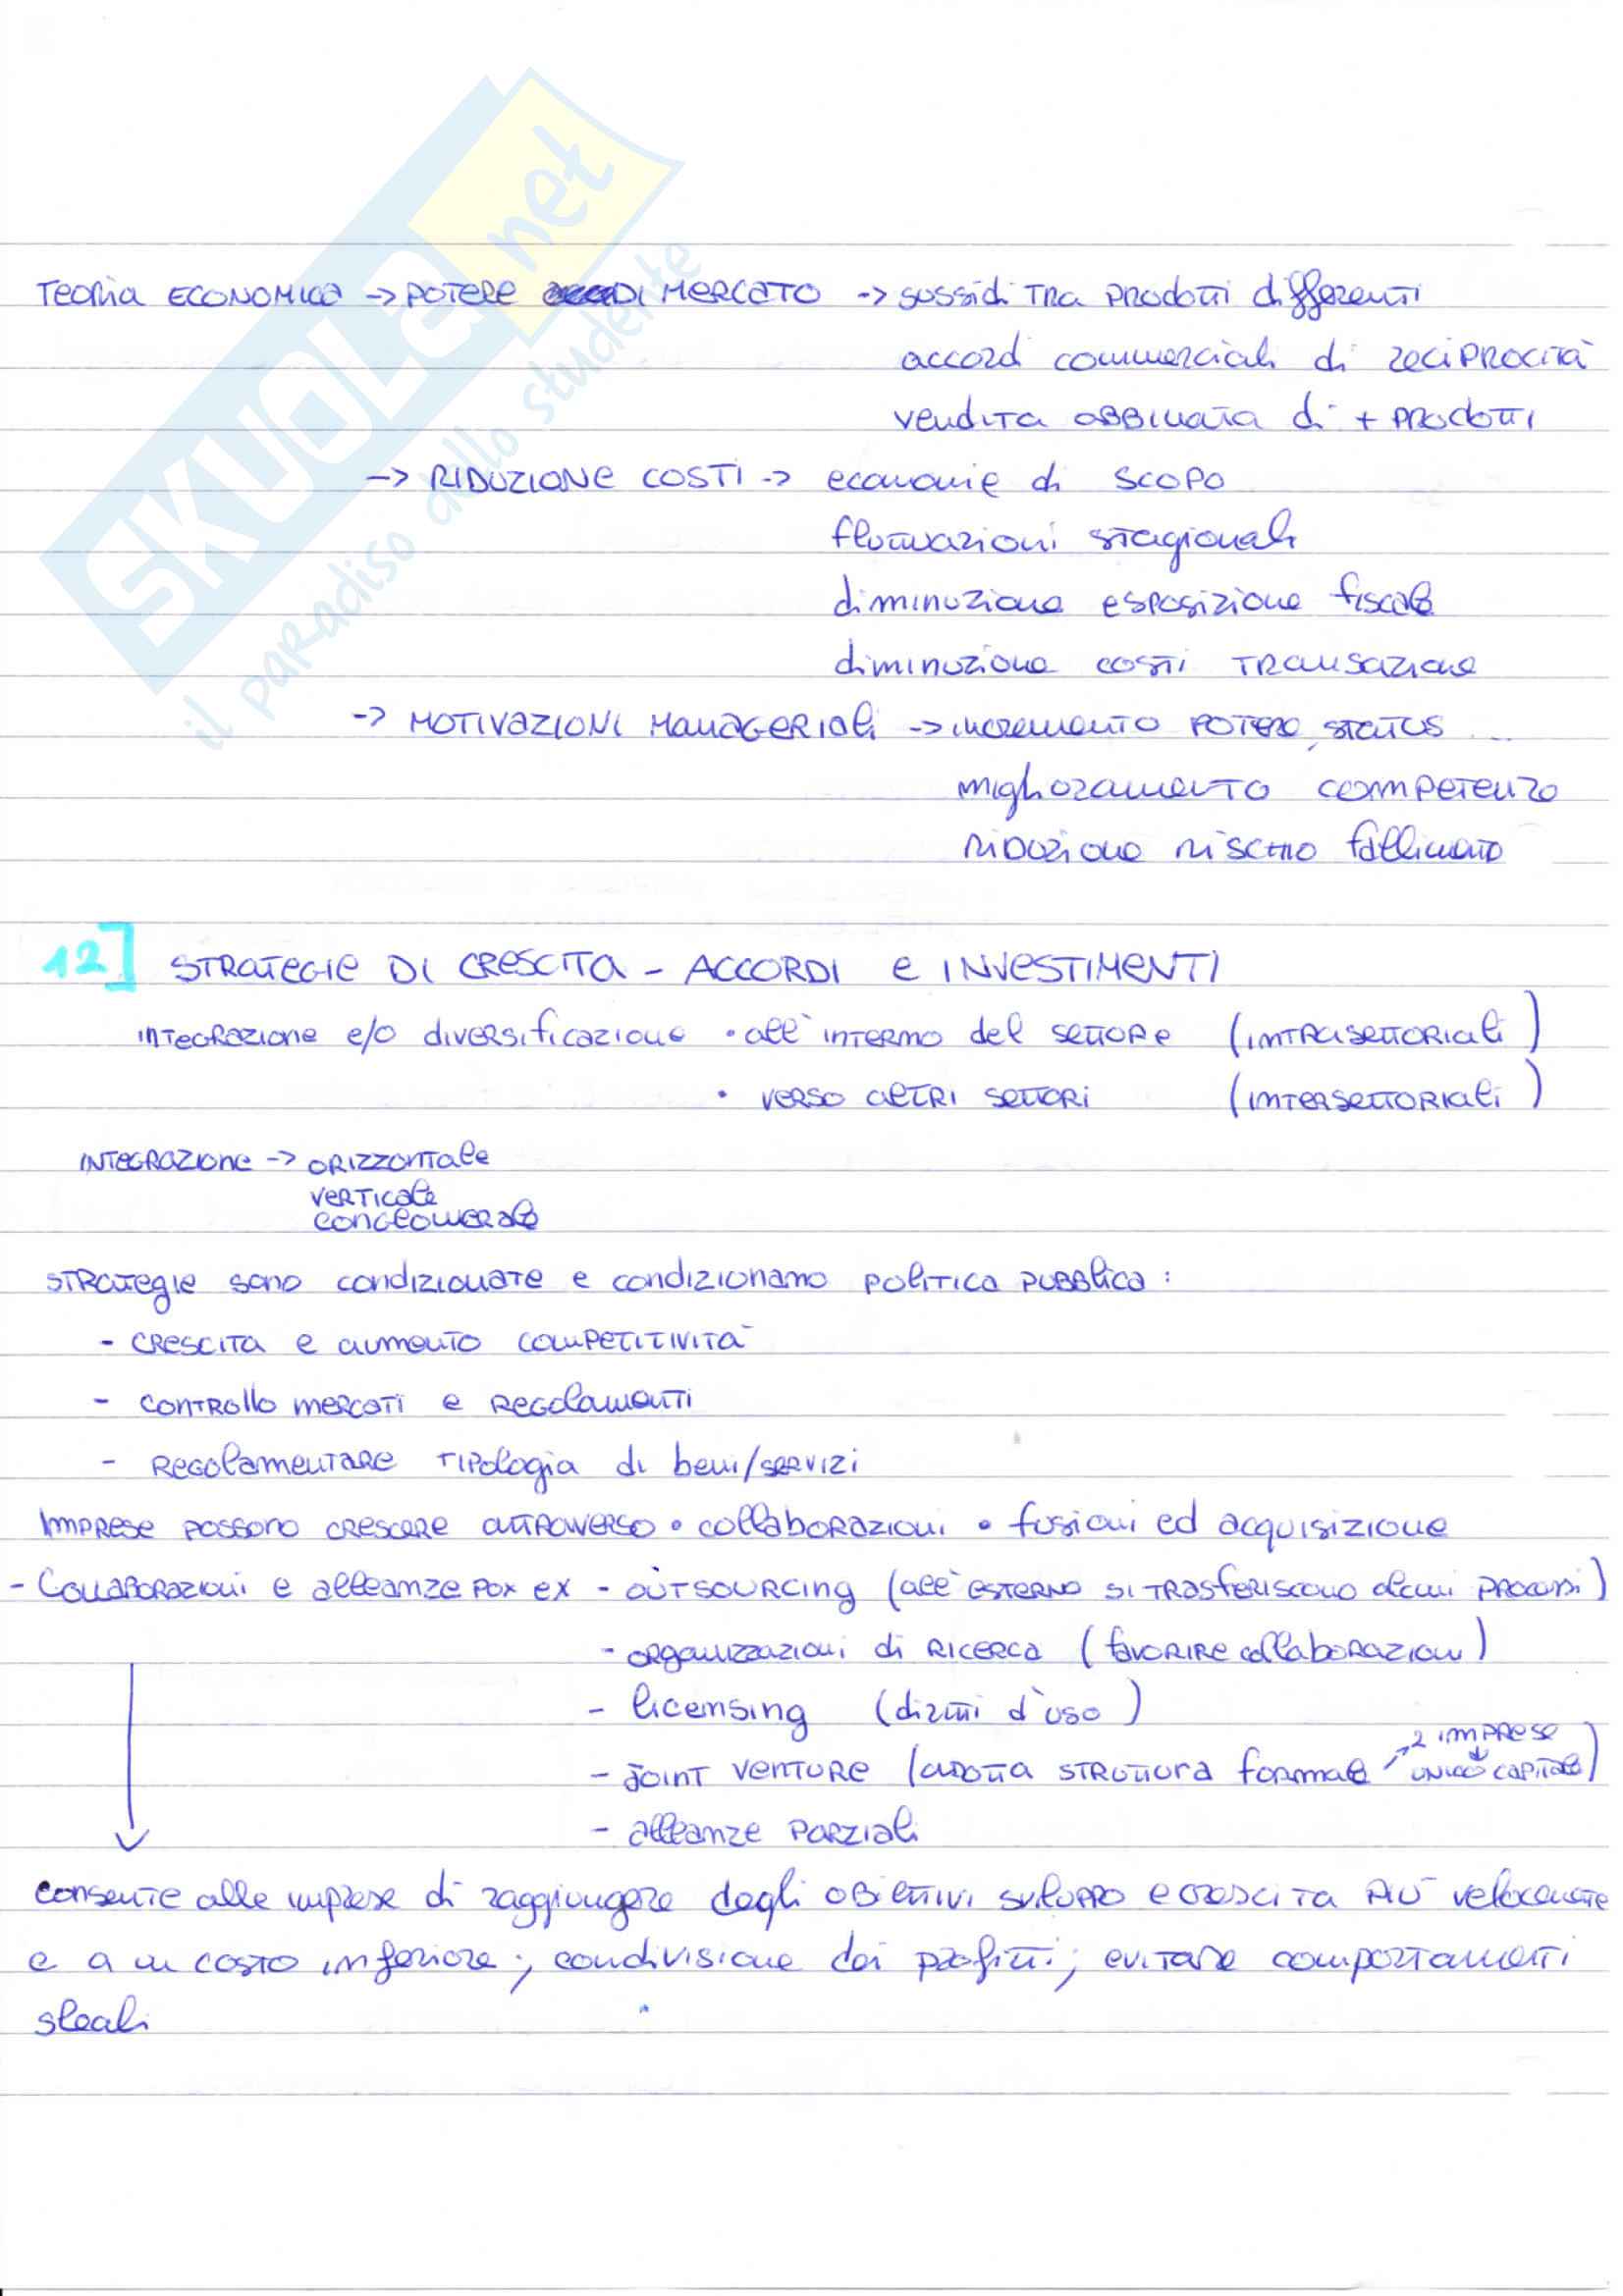 SKUOLA.net
il paradiso dello studente
Teoria ECONOMICA -> POTERE DI MERCATO -> sussidi tra prodotti differenti
accordi commerciali di reciprocità
vendita abbinata di + prodotti
-> RIDUZIONE COSTI -> economie di scopo
fluttuazioni stagionali
diminuzione esposizione fiscale
diminuzione costi transazione
-> MOTIVAZIONI MANAGERIALI -> incremento potere, status ...
miglioramento competenze
riduzione rischio fallimento
12] STRATEGIE DI CRESCITA - ACCORDI e INVESTIMENTI
integrazione e/o diversificazione • all'interno del settore (intrasettoriali)
• verso altri settori (intersettoriali)
INTEGRAZIONE -> orizzontale
verticale
conglomerale
strategie sono condizionate e condizionano politica pubblica:
- crescita e aumento competitività
- controllo mercati e regolamenti
- regolamentare tipologia di beni/servizi
Imprese possono crescere attraverso • collaborazioni • fusioni ed acquisizione
- Collaborazioni e alleanze per ex - outsourcing (all'esterno si trasferiscono alcuni processi)
- organizzazioni di ricerca (favorire collaborazioni)
- licensing (diritti d'uso)
- joint venture (adotta struttura formale ↗ 2 imprese ↓ unico capitale)
- alleanze parziali
consente alle imprese di raggiungere degli obiettivi sviluppo e crescita più velocemente
e a un costo inferiore; condivisione dei profitti; evitare comportamenti
sleali